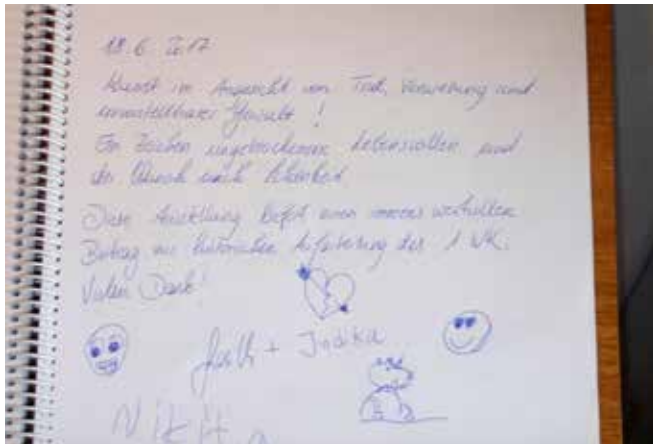 18.6 2017
Kunst im Angesicht von Tod, Verwesung und
unmittelbarer Gewalt!
Ein Zeichen ungebrochenen Lebenswillen und
der Wunsch nach
Diese Ausstellung einen wertvollen
Beitrag zur historischen Aufarbeitung des 1 WK.
Vielen Dank!
+ Indika
Nikit